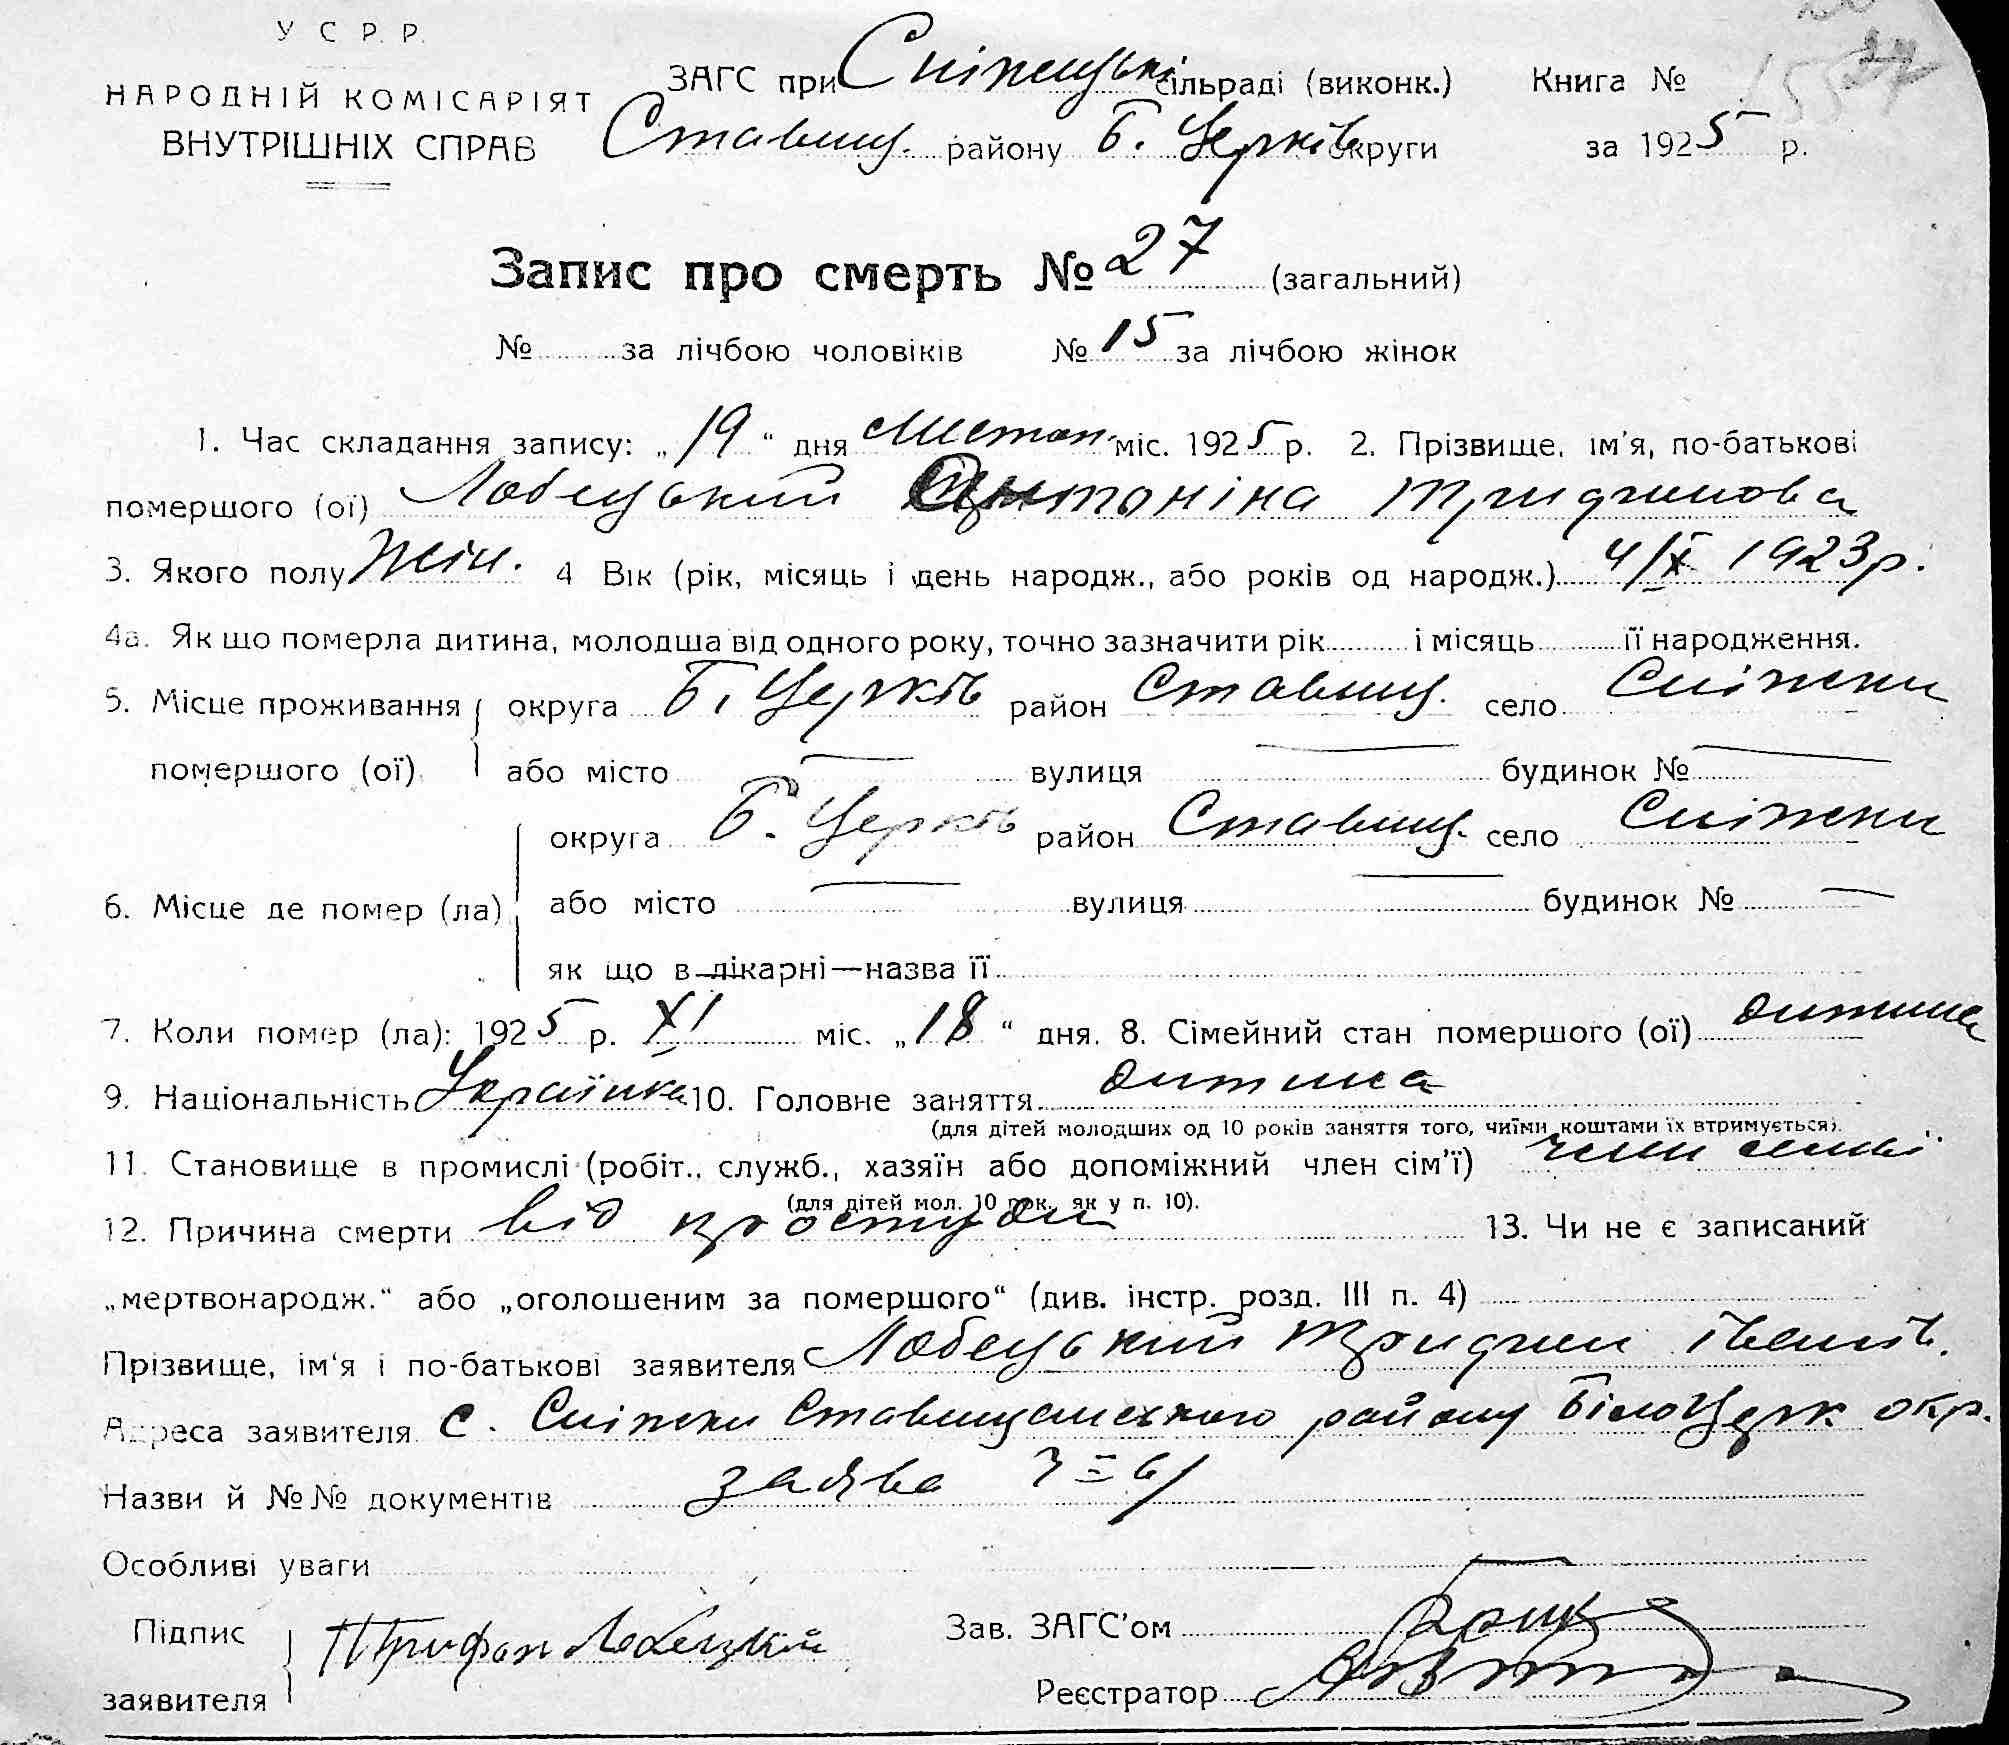 У С Р. Р.
НАРОДНІЙ КОМІСАРІЯТ
ВНУТРІШНІХ СПРАВ
ЗАГС при Сніжецькі сільраді (виконк.) Книга №
Ставищ. району Б. Церків округи за 1925 р.
Запис про смерть № 27 (загальний)
№ за лічбою чоловіків № 15 за лічбою жінок
1. Час складання запису: „19“ дня Листоп. міс. 1925 р. 2. Прізвище, ім'я, по-батькові
помершого (ої) Лобецький Антоніна Тридчинова
3. Якого полу Жін. 4 Вік (рік, місяць і день народж., або років од народж.) 4/X 1923 р.
4а. Як що померла дитина, молодша від одного року, точно зазначити рік і місяць її народження.
5. Місце проживання округа Б. Церків район Ставищ. село Сніжки
помершого (ої) або місто — вулиця — будинок № —
округа Б. Церків район Ставищ. село Сніжки
6. Місце де помер (ла) або місто — вулиця — будинок № —
як що в лікарні—назва її
7. Коли помер (ла): 1925 р. XI міс. „18“ дня. 8. Сімейний стан помершого (ої) дитина
9. Національність Українка 10. Головне заняття дитина
(для дітей молодших од 10 років заняття того, чиїми коштами їх втримується).
11. Становище в промислі (робіт., служб., хазяїн або допоміжний член сім'ї) член семьї
(для дітей мол. 10 рок. як у п. 10).
12. Причина смерти від простуди 13. Чи не є записаний
„мертвонародж.“ або „оголошеним за помершого“ (див. інстр. розд. III п. 4)
Прізвище, ім'я і по-батькові заявителя Лобецький Іванів.
Адреса заявителя с. Сніжки Ставищанського району БілоЦерк окр.
Назви й №№ документів заява
Особливі уваги
Підпис Трифон Лобецкий Зав. ЗАГС'ом
заявителя Реєстратор